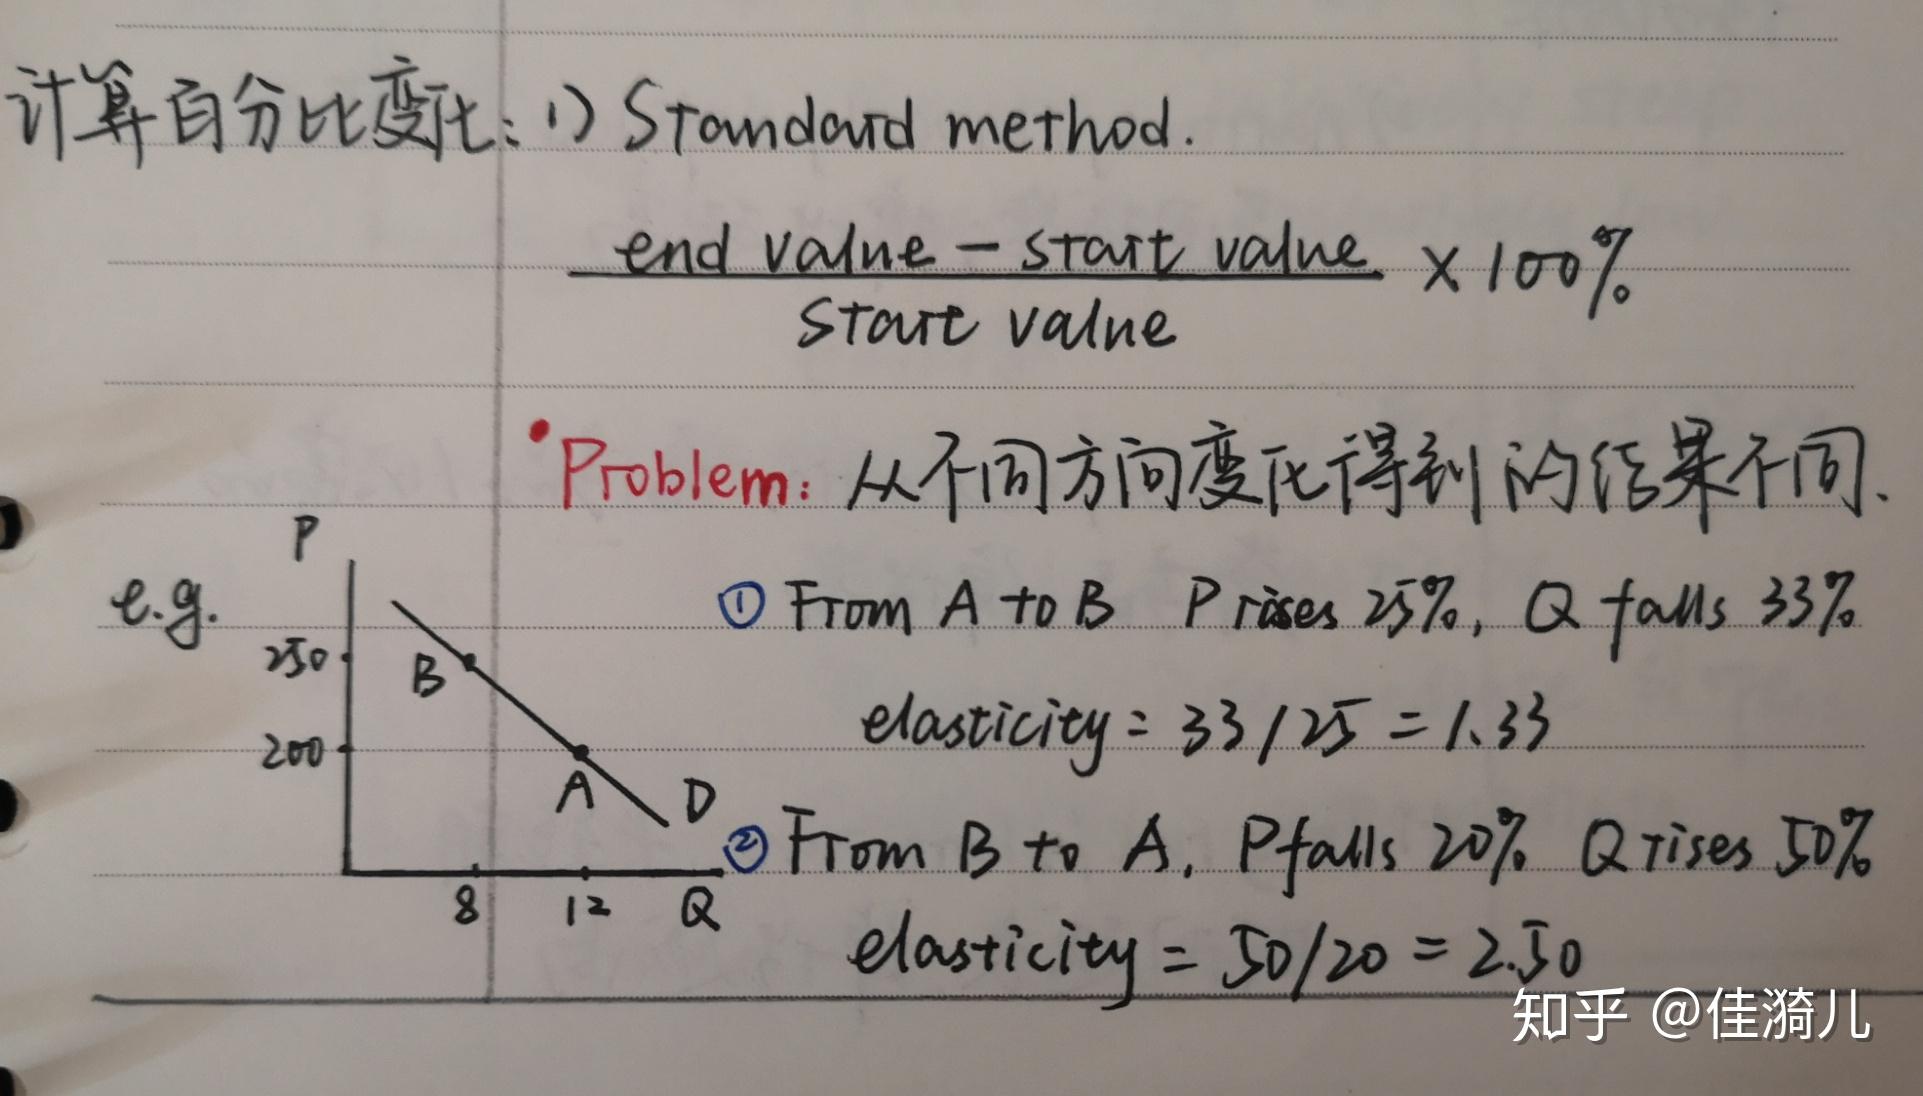 计算百分比变化：1) Standard method.
end value - start value
start value
× 100%
Problem: 从不同方向变化得到的结果不同.
e.g.
P
250
200
B
A
D
8
12
Q
① From A to B P rises 25%, Q falls 33%
elasticity = 33/25 = 1.33
② From B to A, P falls 20% Q rises 50%
elasticity = 50/20 = 2.50
知乎 @佳漪儿